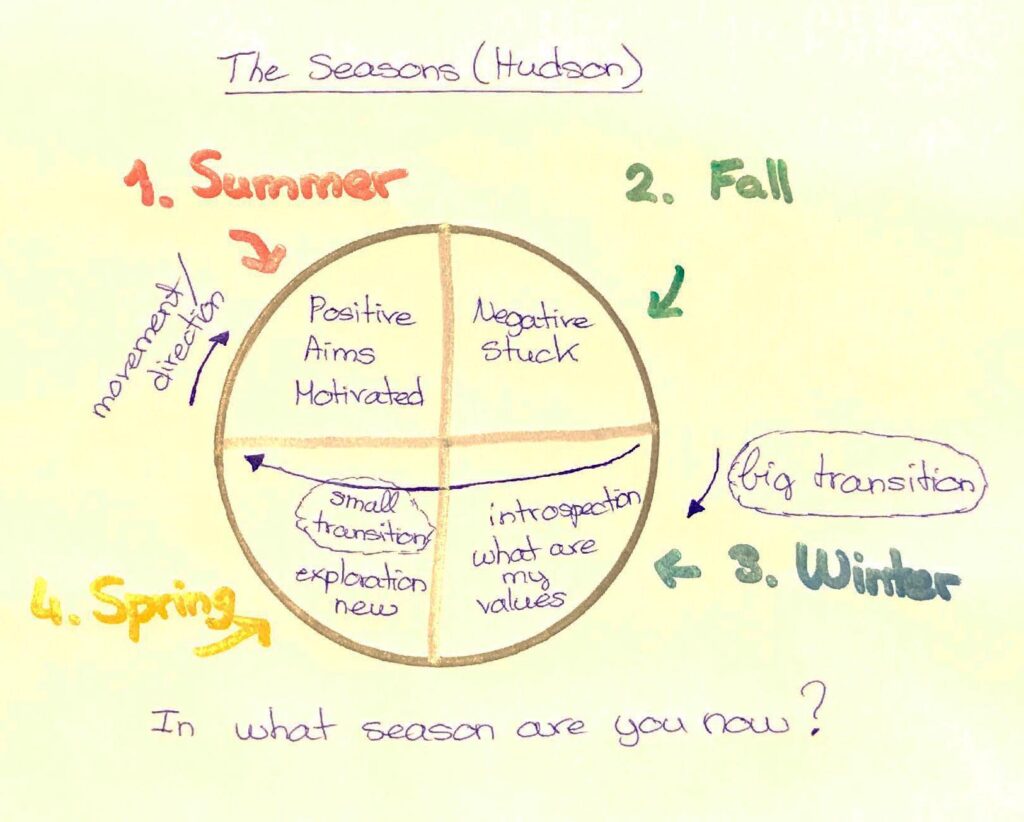 The Seasons (Hudson)
1. Summer
2. Fall
movement/
direction
Positive
Aims
Motivated
Negative
Stuck
big transition
small
transition
exploration
new
introspection
what are
my
values
3. Winter
4. Spring
In what season are you now?